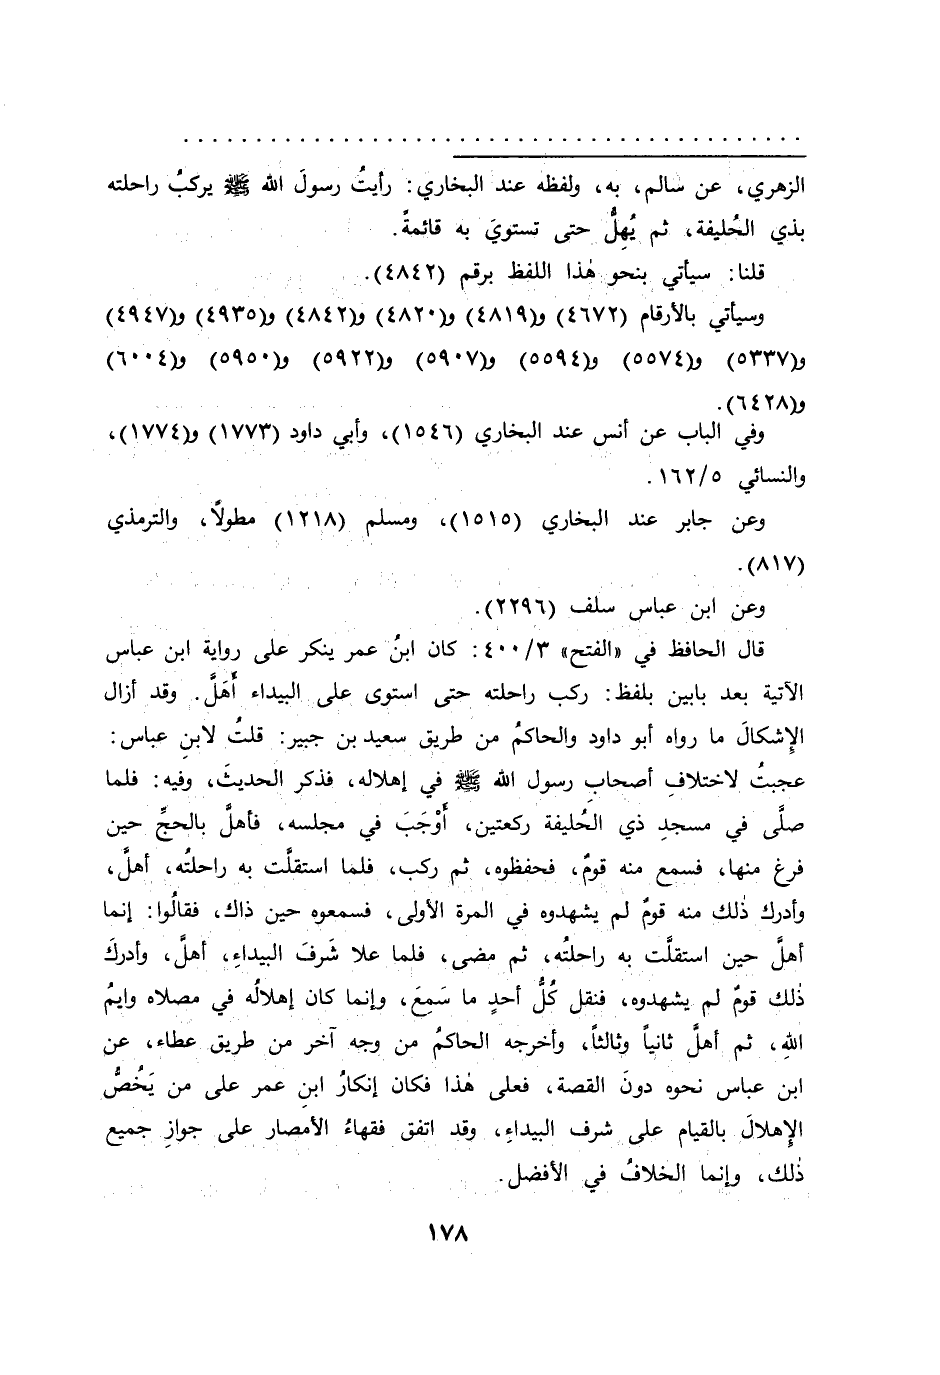 الزهري، عن سالم، به، ولفظه عند البخاري: رأيتُ رسولَ الله ﷺ يركبُ راحلته
بذي الحُليفة، ثم يُهِلُّ حتى تستويَ به قائمةً.
قلنا: سيأتي بنحو هٰذا اللفظ برقم (٤٨٤٢).
وسيأتي بالأرقام (٤٦٧٢) و(٤٨١٩) و(٤٨٢٠) و(٤٨٤٢) و(٤٩٣٥) و(٤٩٤٧)
و(٥٣٣٧) و(٥٥٧٤) و(٥٥٩٤) و(٥٩٠٧) و(٥٩٢٢) و(٥٩٥٠) و(٦٠٠٤)
و(٦٤٢٨).
وفي الباب عن أنس عند البخاري (١٥٤٦)، وأبي داود (١٧٧٣) و(١٧٧٤)،
والنسائي ١٦٢/٥.
وعن جابر عند البخاري (١٥١٥)، ومسلم (١٢١٨) مطولًا، والترمذي
(٨١٧).
وعن ابن عباس سلف (٢٢٩٦).
قال الحافظ في «الفتح» ٤٠٠/٣: كان ابنُ عمر ينكر على رواية ابن عباس
الآتية بعد بابين بلفظ: ركب راحلته حتى استوى على البيداء أَهَلَّ. وقد أزال
الإِشكالَ ما رواه أبو داود والحاكمُ من طريق سعيد بن جبير: قلتُ لابنِ عباس:
عجبتُ لاختلافِ أصحابِ رسول الله ﷺ في إهلاله، فذكر الحديثَ، وفيه: فلما
صلَّى في مسجدِ ذي الحُليفة ركعتين، أَوْجَبَ في مجلسه، فأهلَّ بالحجِّ حين
فرغ منها، فسمع منه قومٌ، فحفظوه، ثم ركب، فلما استقلَّت به راحلتُه، أهلَّ،
وأدرك ذٰلك منه قومٌ لم يشهدوه في المرة الأولى، فسمعوه حين ذاك، فقالُوا: إنما
أهلَّ حين استقلَّت به راحلتُه، ثم مضى، فلما علا شَرفَ البيداءِ، أهلَّ، وأدركَ
ذٰلك قومٌ لم يشهدوه، فنقل كُلُّ أحدٍ ما سَمِعَ، وإنما كان إهلالُه في مصلاه وايمُ
اللهِ، ثم أهلَّ ثانياً وثالثاً، وأخرجه الحاكمُ من وجه آخر من طريق عطاء، عن
ابن عباس نحوه دونَ القصة، فعلى هٰذا فكان إنكارُ ابنِ عمر على من يَخُصُّ
الإِهلالَ بالقيام على شرف البيداءِ، وقد اتفق فقهاءُ الأمصار على جوازِ جميع
ذٰلك، وإنما الخلافُ في الأفضل.
١٧٨